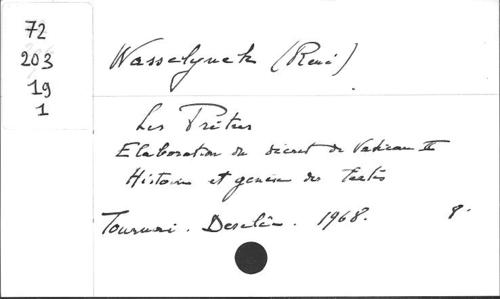 72
203
19
1
Wasselynck (René)
Les Prêtres
Elaboration du décret de Vatican II
Histoire et genèse des textes
Tournai. Desclée. 1968. 8.